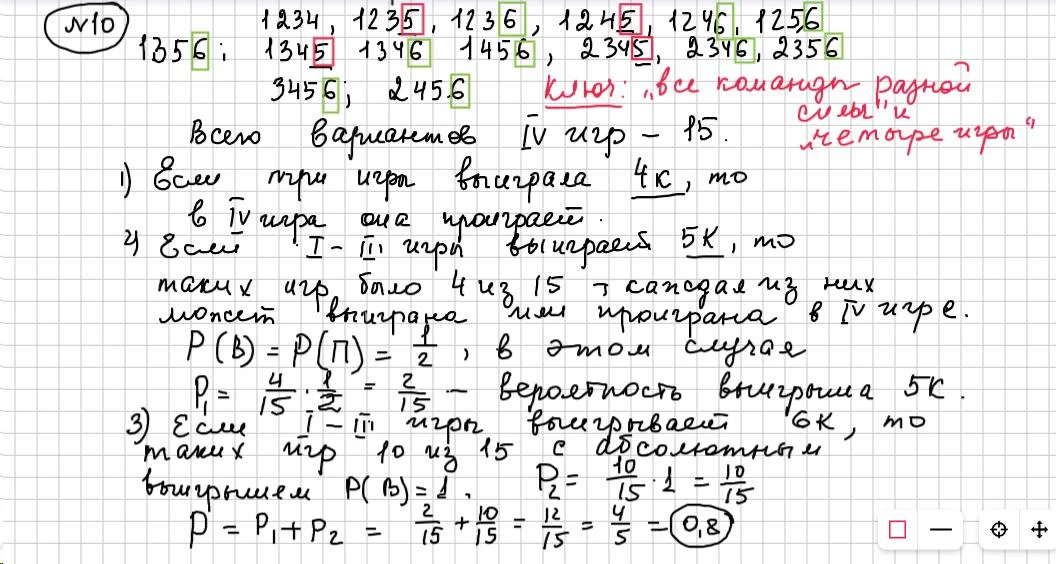 №10
1234, 1235, 1236, 1245, 1246, 1256
1356; 1345 1346 1456, 2345, 2346, 2356
3456; 2456 Ключ: „все команды разной
силы" и
„четыре игры"
Всего вариантов IV игр – 15.
1) Если три игры выиграла 4к, то
в IV игра она проиграет.
2) Если I – III игры выиграет 5К, то
таких игр было 4 из 15 → каждая из них
может выиграна или проиграна в IV игре.
P(В) = P(П) = 1/2, в этом случая
P₁ = 4/15 · 1/2 = 2/15 – вероятность выигрыша 5К.
3) Если I – III игры выигрывает 6К, то
таких игр 10 из 15 с абсолютным
выигрышем P(В) = 1. P₂ = 10/15 · 1 = 10/15
P = P₁ + P₂ = 2/15 + 10/15 = 12/15 = 4/5 = 0,8